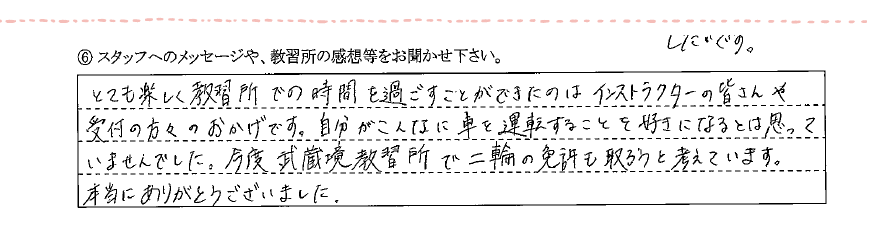 しにがみ。
⑥スタッフへのメッセージや、教習所の感想等をお聞かせ下さい。
とても楽しく教習所での時間を過ごすことができたのは インストラクターの皆さんや
受付の方々のおかげです。自分がこんなに車を運転することを好きになるとは思って
いませんでした。今度武蔵境教習所で二輪の免許も取ろうと考えています。
本当にありがとうございました.